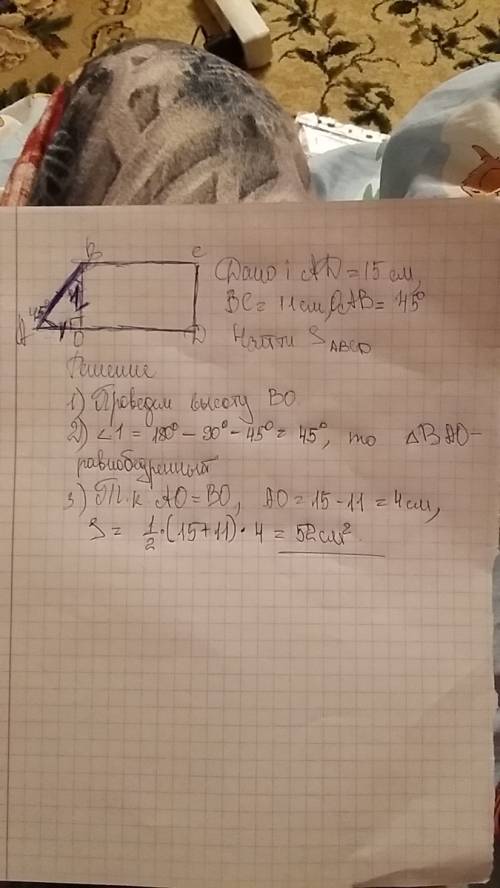 B C
45° 1
A O D
Дано: AD = 15 см,
BC = 11 см, OAB = 45°
Найти S ABCD
Решение
1) Проведем высоту BO
2) ∠1 = 180° - 90° - 45° = 45°, то △BAO -
равнобедренный
3) Т.к AO = BO, AO = 15 - 11 = 4 см,
S = 1/2 · (15 + 11) · 4 = 52 см².